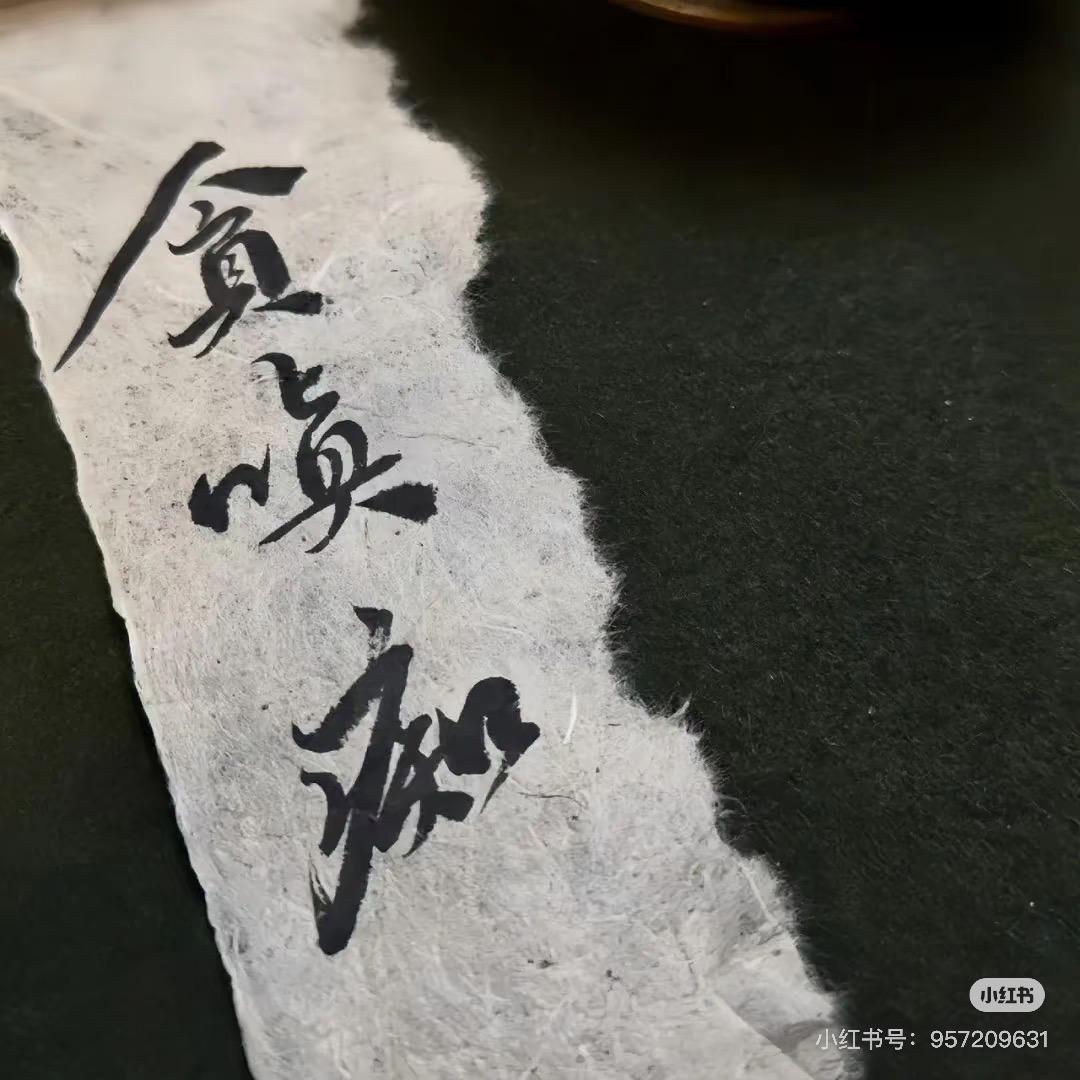 貪嗔痴
小红书
小红书号：957209631